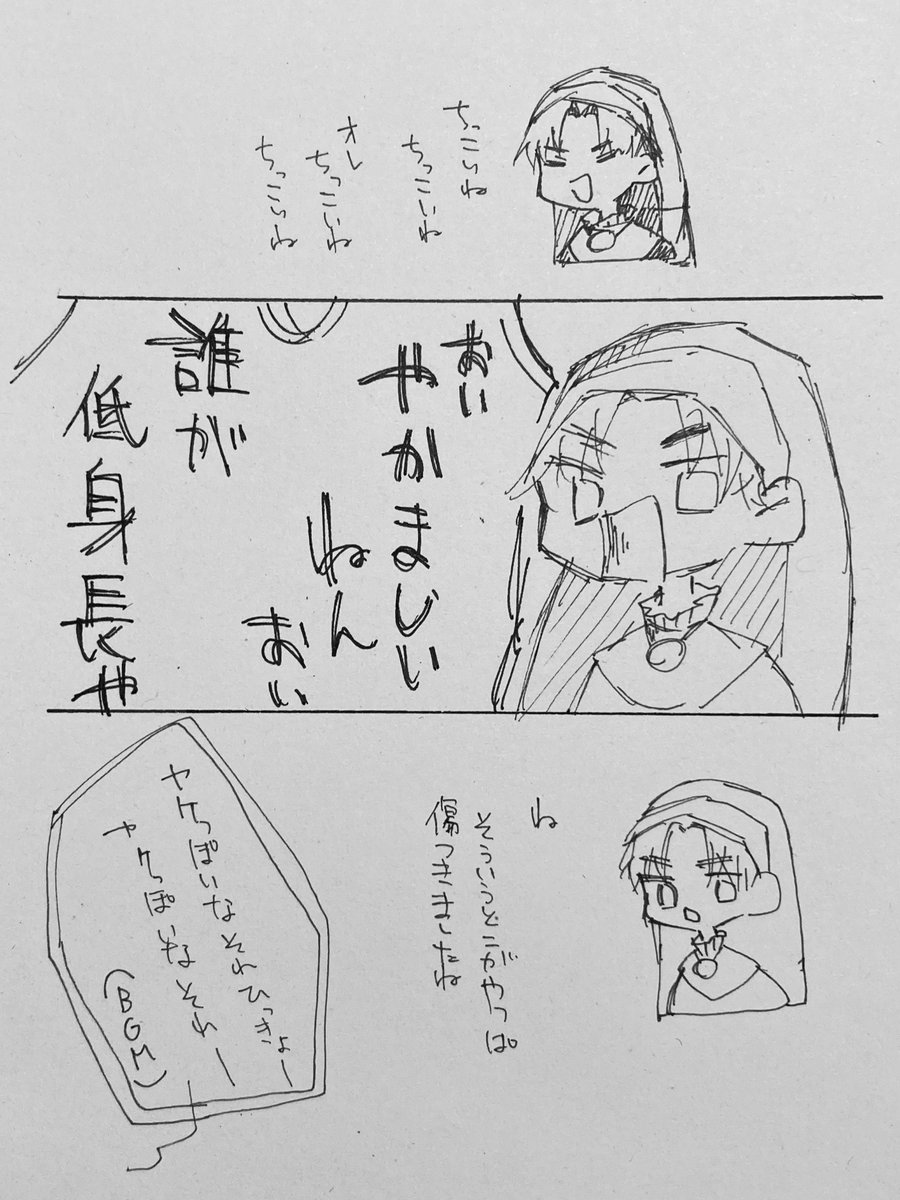 ちっこいね
ちっこいね
オレ
ちっこいね
ちっこいね
おい
やかましい
ねん
おい
誰が
低身長や
ね
そういうとこがやっぱ
傷つきましたね
ヤケっぽいなそれひっきょー
ヤケっぽいなそれー
(BGM)